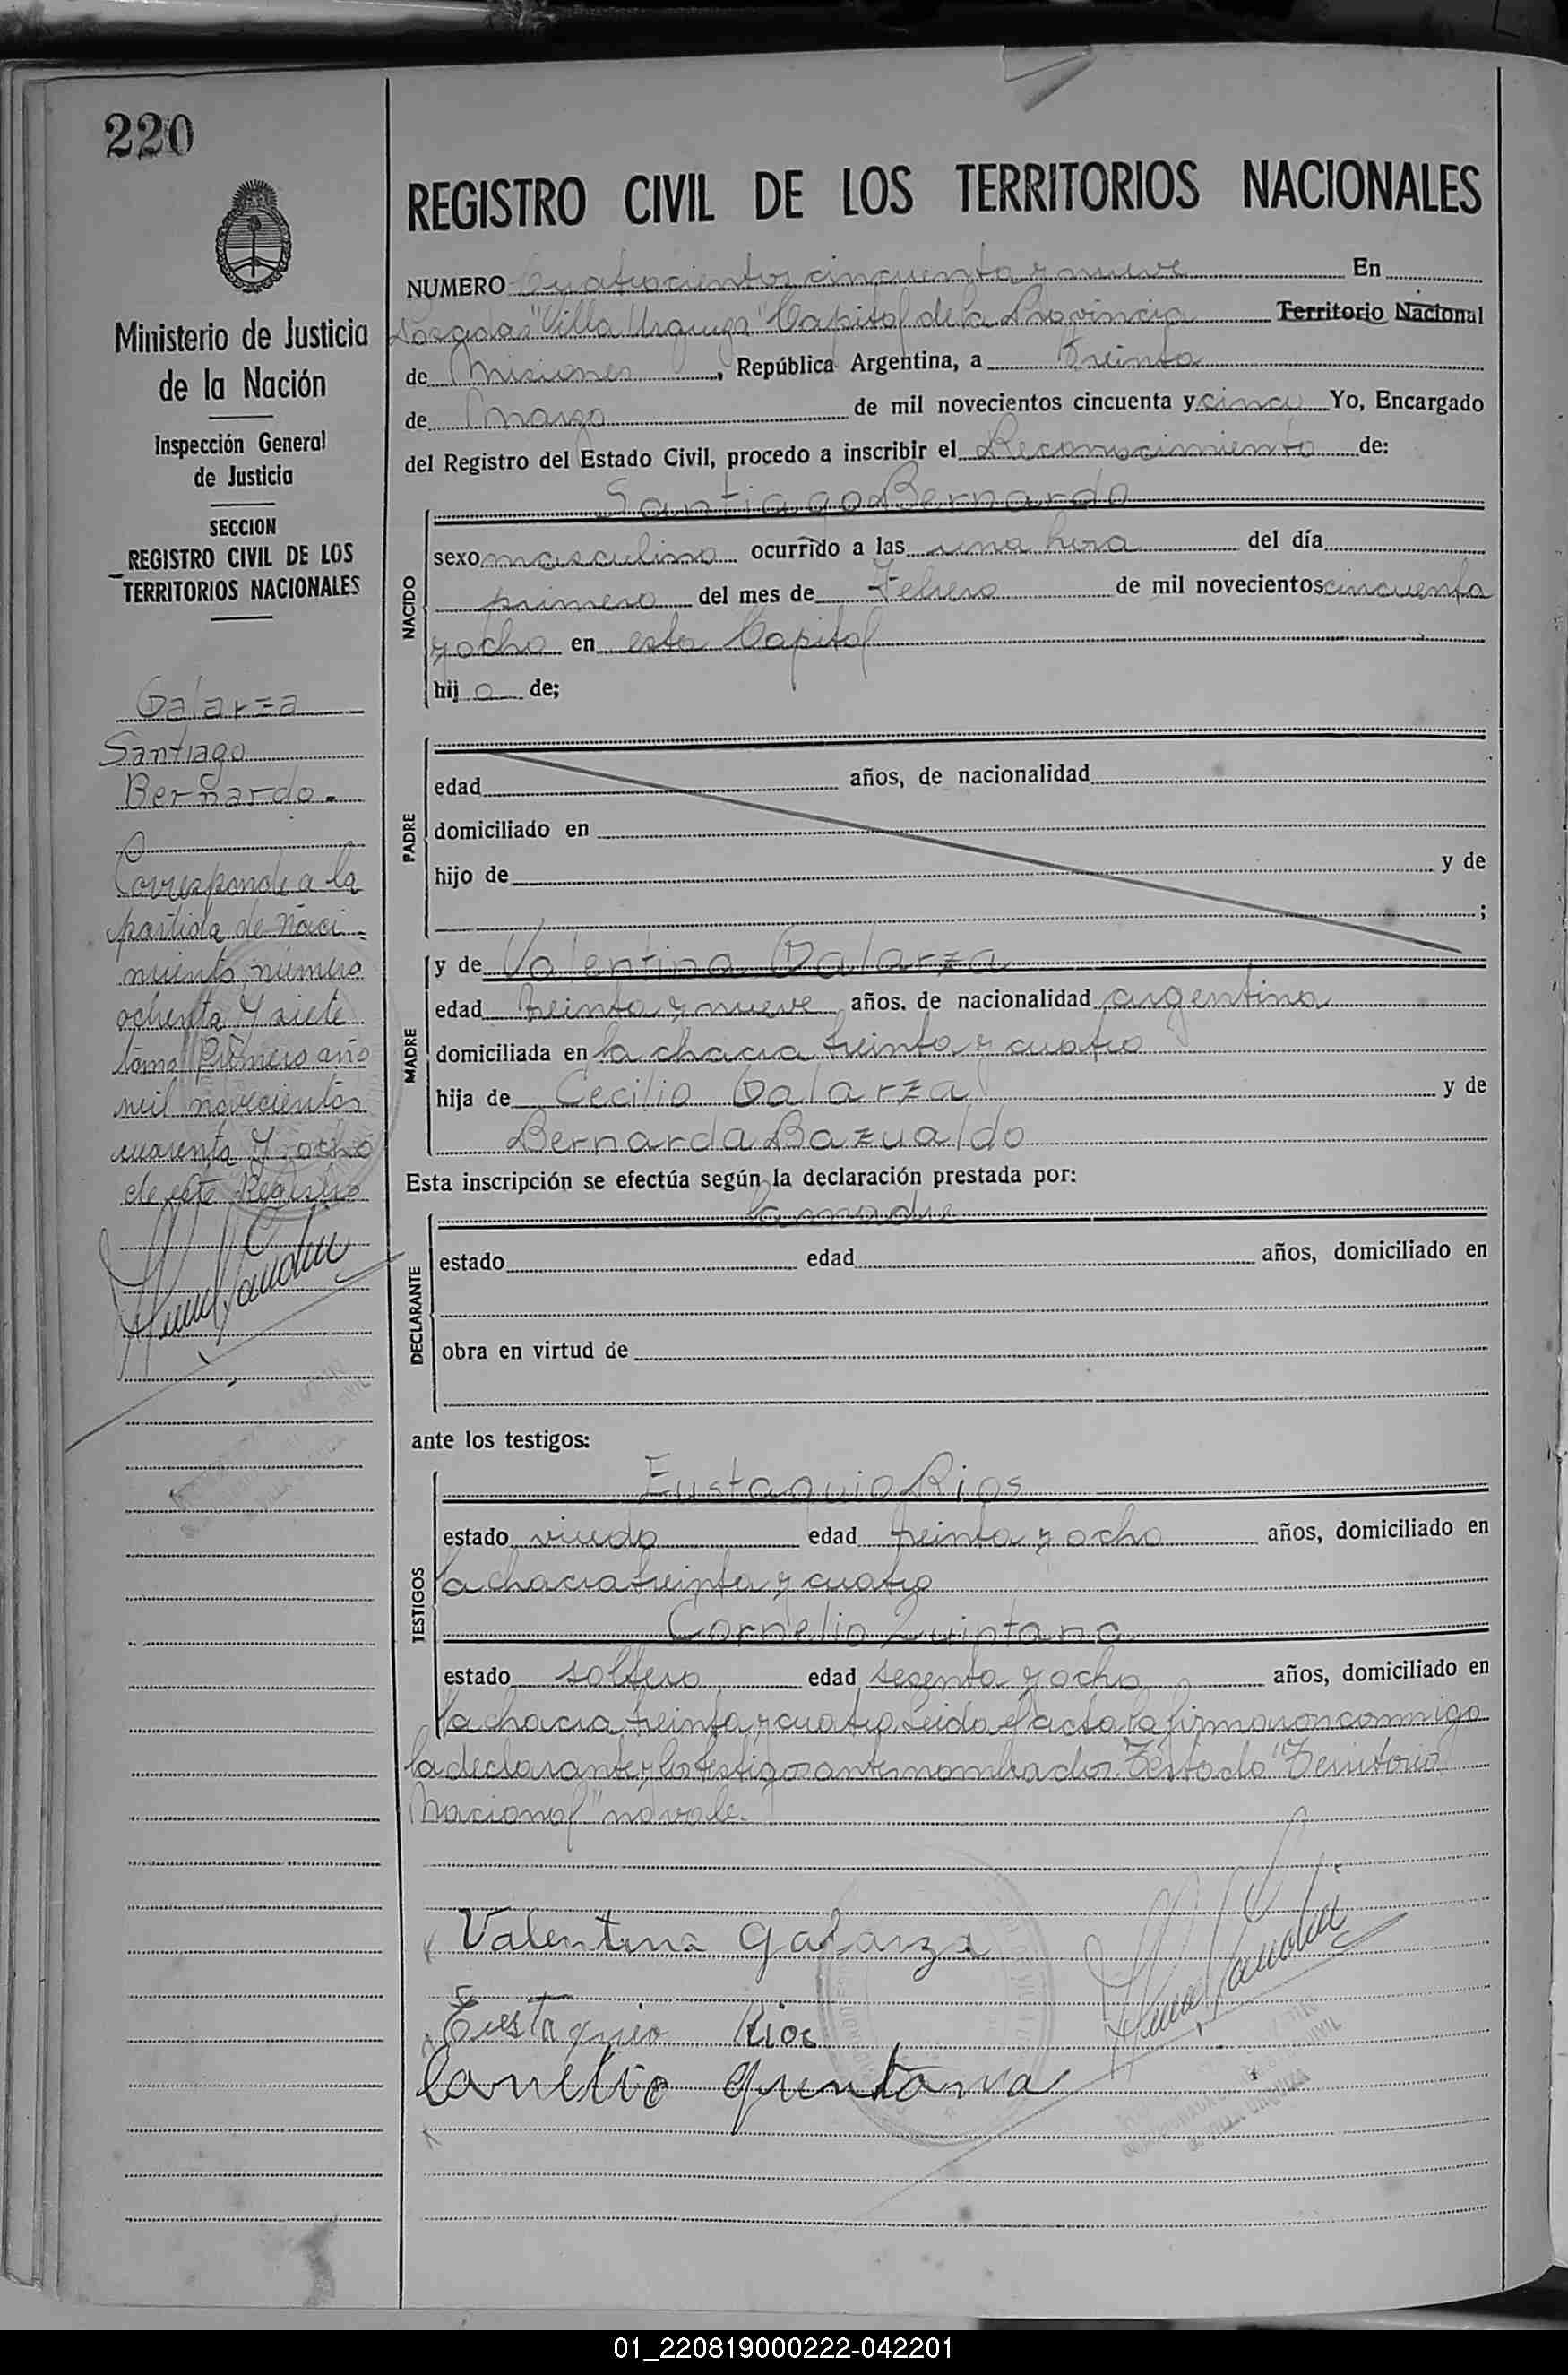 220
Ministerio de Justicia
de la Nación
Inspección General
de Justicia
SECCION
REGISTRO CIVIL DE LOS
TERRITORIOS NACIONALES
Galarza
Santiago
Bernardo.-
Corresponde a la
partida de naci-
miento número
ochenta y siete
tomo Primero año
mil novecientos
cuarenta y ocho
de este Registro
REGISTRO CIVIL DE LOS TERRITORIOS NACIONALES
NUMERO Cuatrocientos cincuenta y nueve En
Posadas "Villa Urquiza" Capital de la Provincia Territorio Nacional
de Misiones, República Argentina, a treinta
de marzo de mil novecientos cincuenta y cinco Yo, Encargado
del Registro del Estado Civil, procedo a inscribir el Reconocimiento de:
NACIDO
Santiago Bernardo
sexo masculino ocurrido a las una hora del día
primero del mes de Febrero de mil novecientos cincuenta
y ocho en esta Capital
hij o de;
PADRE
edad años, de nacionalidad
domiciliado en
hijo de y de
;
MADRE
y de Valentina Galarza
edad treinta y nueve años, de nacionalidad argentina
domiciliada en la chacra treinta y cuatro
hija de Cecilio Galarza y de
Bernarda Bazualdo
Esta inscripción se efectúa según la declaración prestada por:
DECLARANTE
la madre
estado edad años, domiciliado en
obra en virtud de
ante los testigos:
TESTIGOS
Eustaquio Rios
estado viudo edad treinta y ocho años, domiciliado en
la chacra treinta y cuatro
Cornelio Quintana
estado soltero edad sesenta y ocho años, domiciliado en
la chacra treinta y cuatro. Leida el acta la firmaron conmigo
la declarante y los testigos antes nombrados. Testado "Territorio
Nacional" no vale.
Valentina Galarza
Eustaquio Rios
Cornelio Quintana
01_220819000222-042201